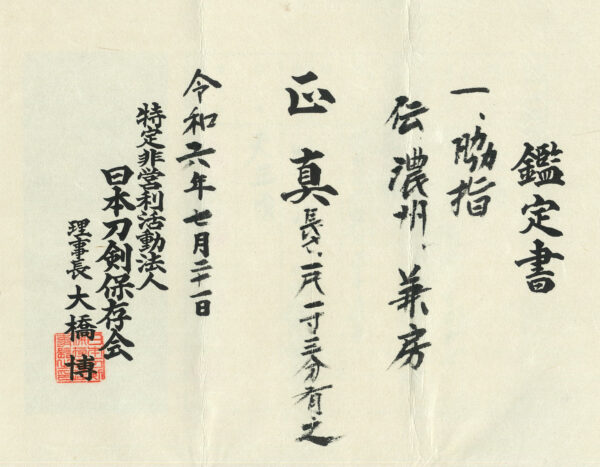 鑑定書
一、脇指
伝濃州、兼房
正真
長さ、一尺一寸三分有之
令和六年七月二十一日
特定非営利活動法人
日本刀剣保存会
理事長 大橋博